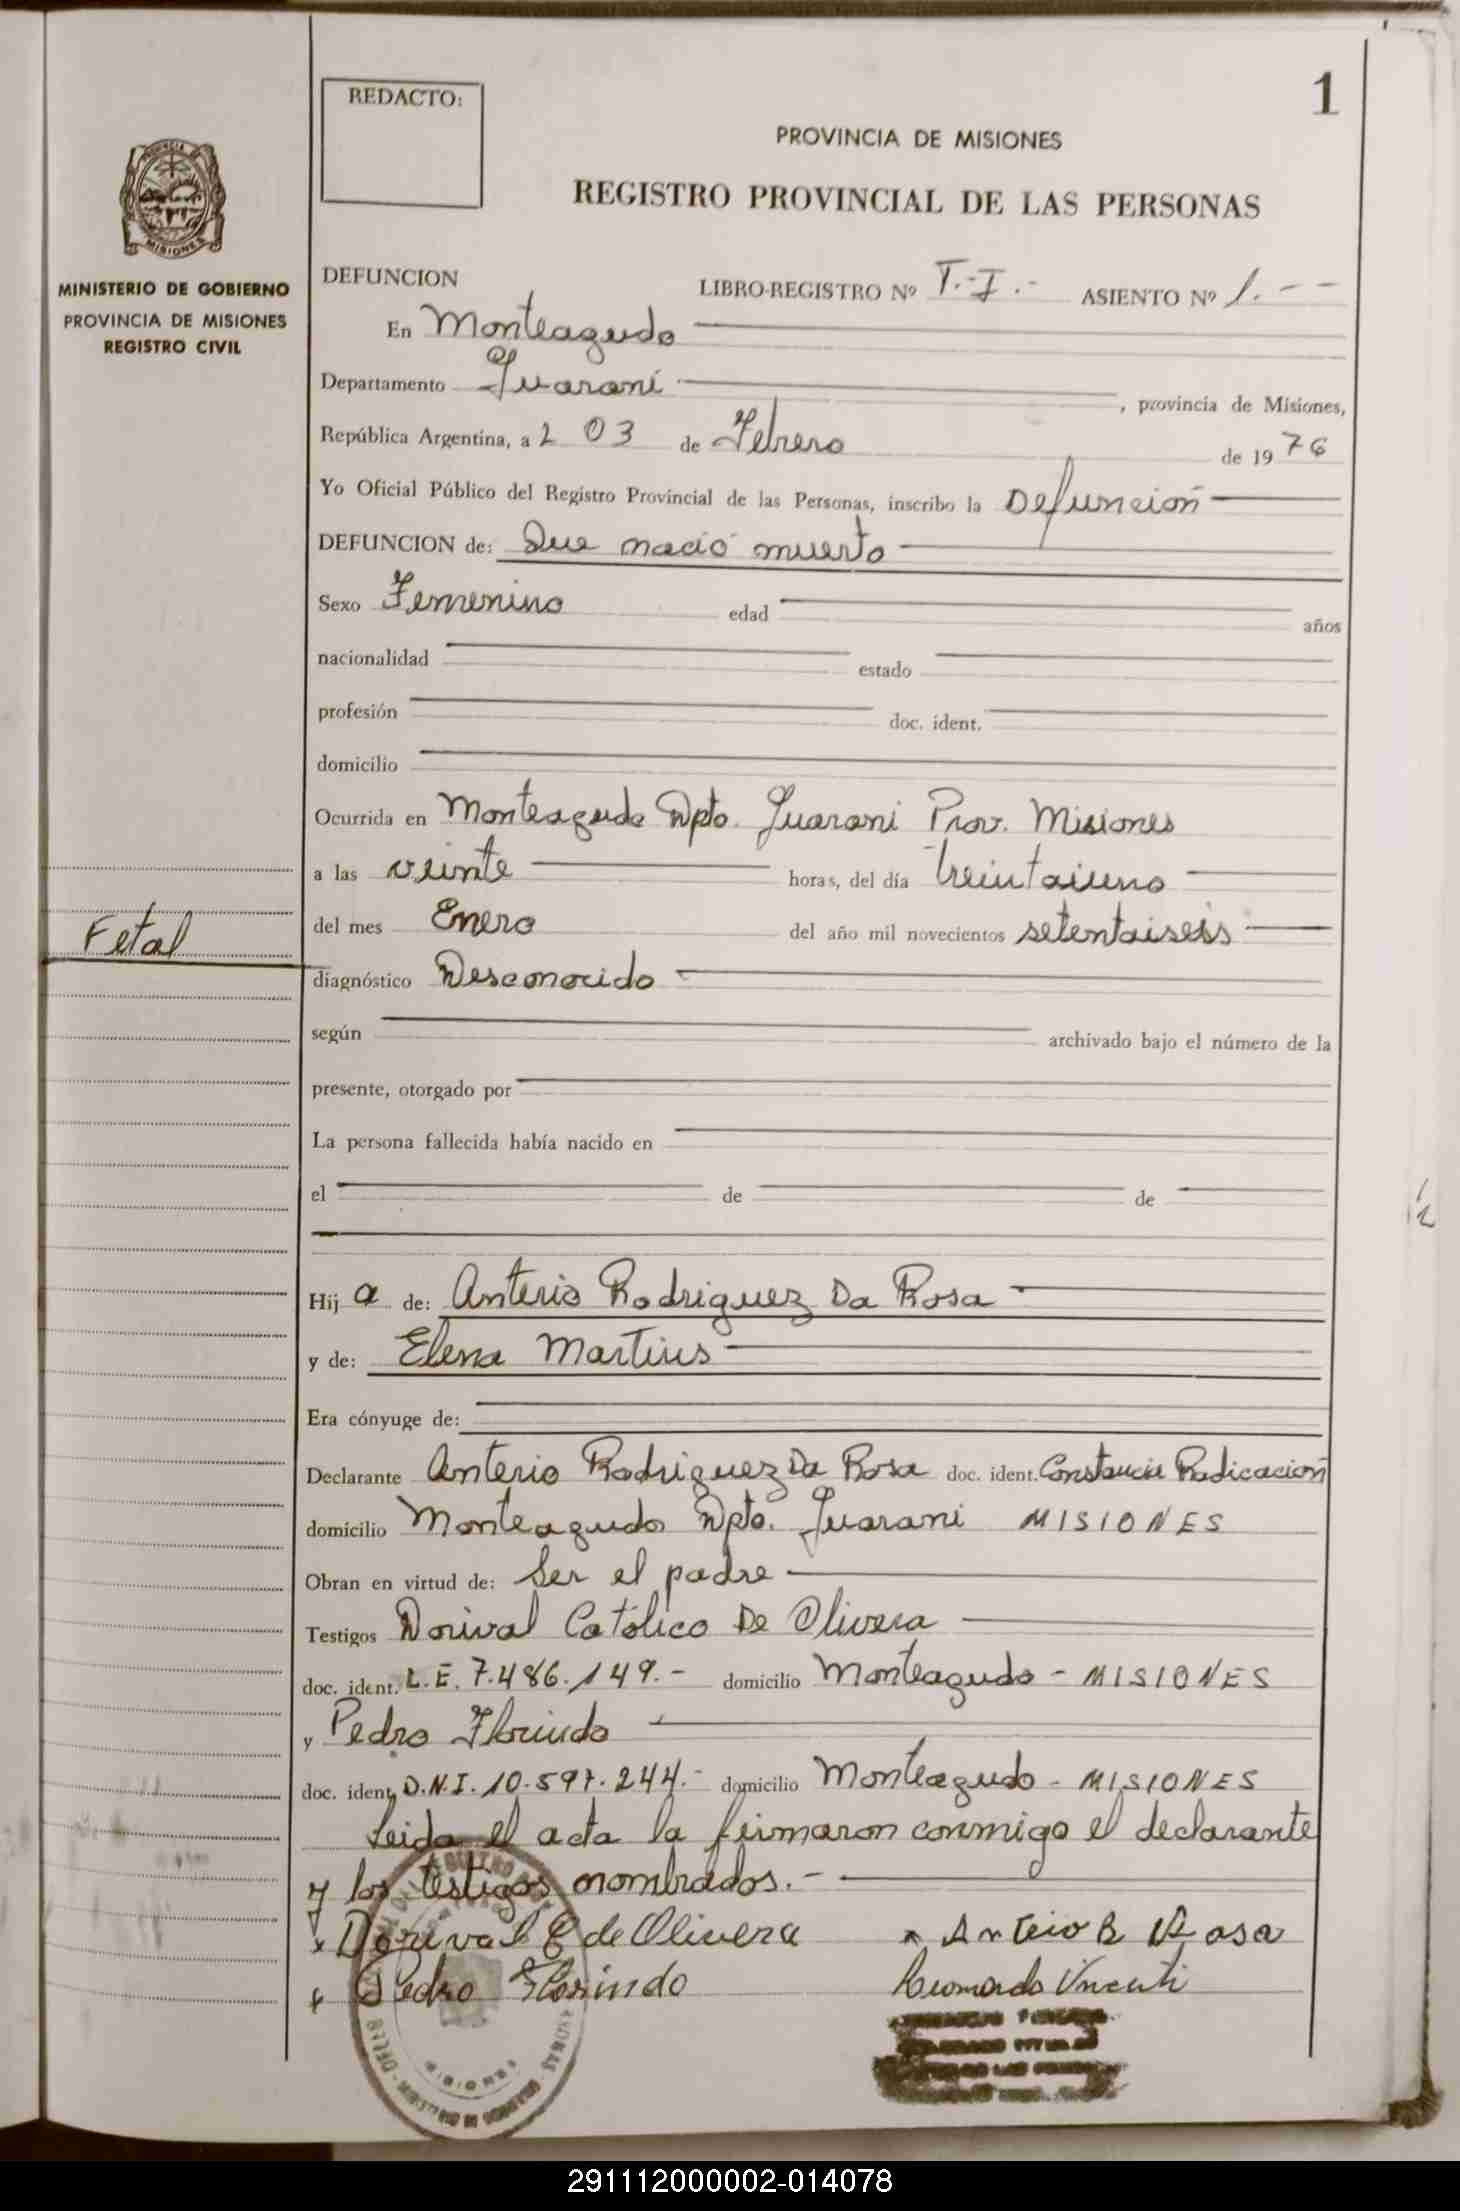 1
REDACTO:
PROVINCIA DE MISIONES
REGISTRO PROVINCIAL DE LAS PERSONAS
MISIONES
MINISTERIO DE GOBIERNO
PROVINCIA DE MISIONES
REGISTRO CIVIL
DEFUNCION LIBRO-REGISTRO Nº T.-I.- ASIENTO Nº 1.--
En Monteagudo
Departamento Guarani , provincia de Misiones,
República Argentina, a 2 03 de Febrero de 1976
Yo Oficial Público del Registro Provincial de las Personas, inscribo la Defunción
DEFUNCION de: Que nació muerto
Sexo Femenino edad años
nacionalidad estado
profesión doc. ident.
domicilio
Ocurrida en Monteagudo Dpto. Guarani Prov. Misiones
a las veinte horas, del día treintaiuno
Fetal
del mes Enero del año mil novecientos setentaiseis
diagnóstico Desconocido
según archivado bajo el número de la
presente, otorgado por
La persona fallecida había nacido en
el de de
Hij a de: Anterio Rodriguez Da Rosa
y de: Elena Martins
Era cónyuge de:
Declarante Anterio Rodriguez Da Rosa doc. ident. Constancia Radicación
domicilio Monteagudo Dpto. Guarani MISIONES
Obran en virtud de: Ser el padre
Testigos Dorival Católico De Olivera
doc. ident. L.E. 7.486.149.- domicilio Monteagudo - MISIONES
y Pedro Florindo
doc. ident. D.N.I. 10.597.244.- domicilio Monteagudo - MISIONES
Leida el acta la firmaron conmigo el declarante
y los testigos nombrados.-
x Dorival C de Olivera x Anteio R Rosa
x Pedro Florindo
291112000002-014078